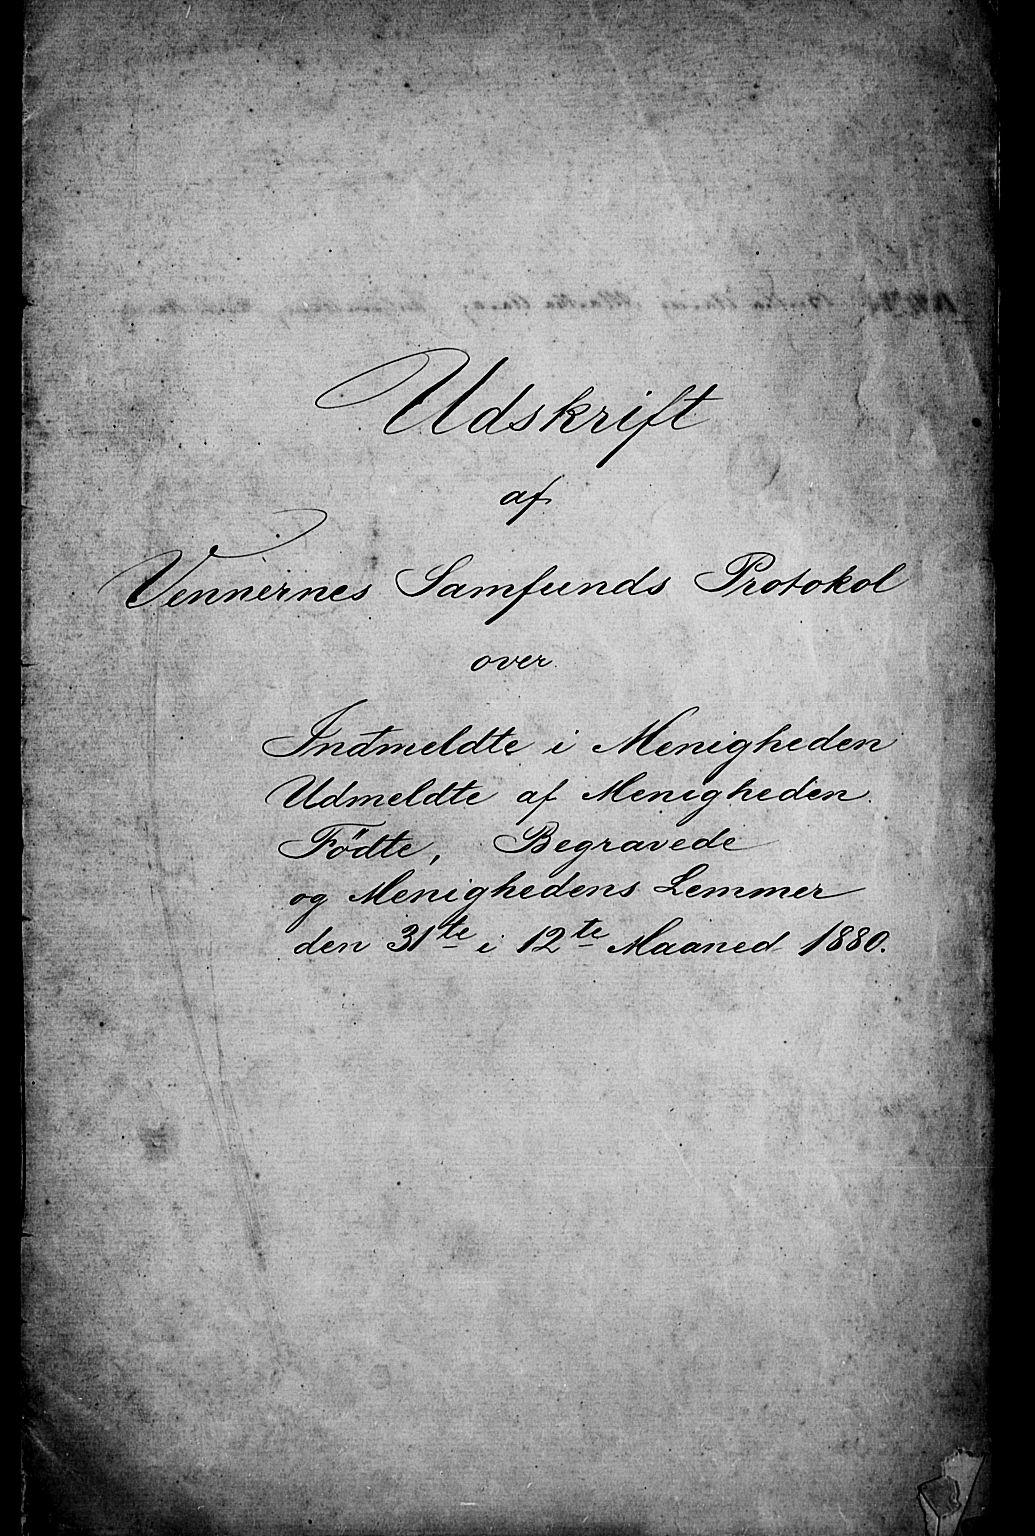 Udskrift
af
Vennernes Samfunds Protokol
over
Indmeldte i Menigheden
Udmeldte af Menigheden.
Födte, Begravede
og Menighedens Lemmer
den 31te i 12te Maaned 1880.